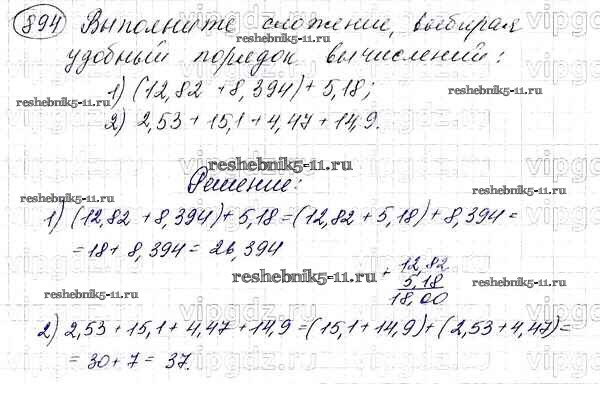 894 Выполните сложение, выбирая
удобный порядок вычислений:
1) (12,82 + 8,394) + 5,18;
2) 2,53 + 15,1 + 4,47 + 14,9.
Решение:
1) (12,82 + 8,394) + 5,18 = (12,82 + 5,18) + 8,394 =
= 18 + 8,394 = 26,394
+ 12,82
5,18
18,00
2) 2,53 + 15,1 + 4,47 + 14,9 = (15,1 + 14,9) + (2,53 + 4,47) =
= 30 + 7 = 37.
reshebnik5-11.ru
reshebnik5-11.ru
reshebnik5-11.ru
reshebnik5-11.ru
reshebnik5-11.ru
reshebnik5-11.ru
reshebnik5-11.ru
reshebnik5-11.ru
reshebnik5-11.ru